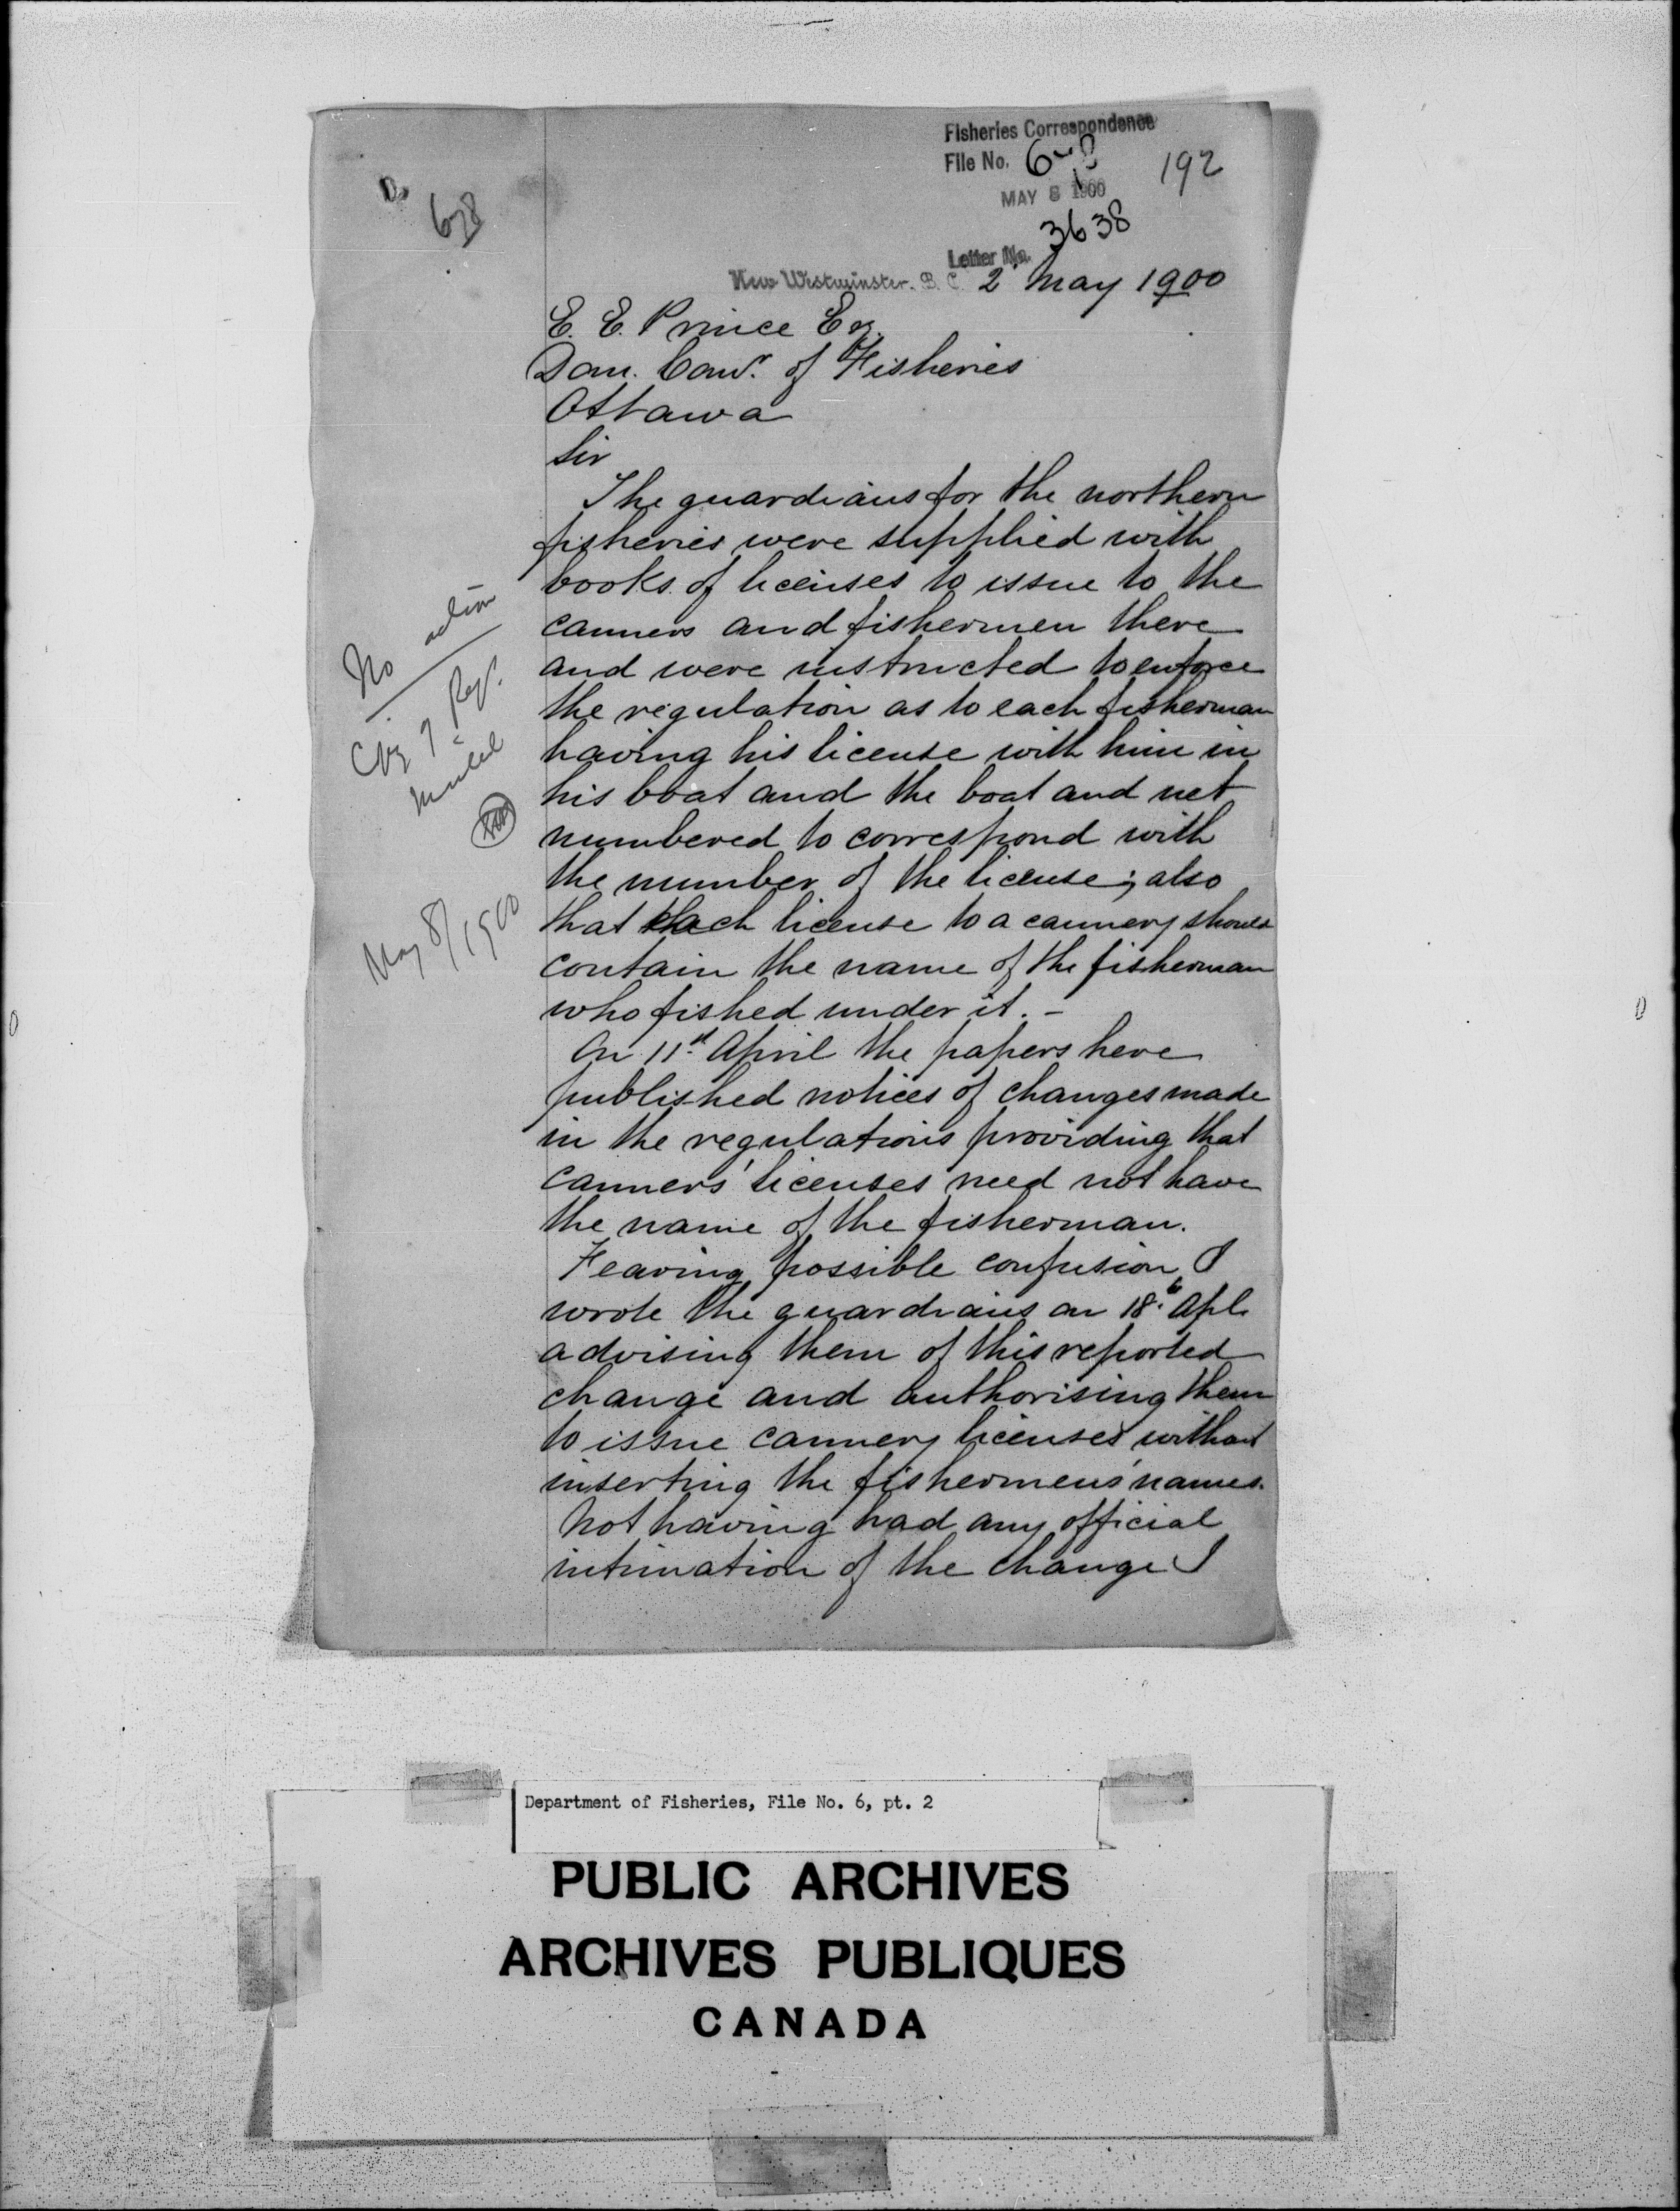 Fisheries Correspondence
File No. 6
192
MAY 8 1900
678
3638
Letter No.
New Westminster. B. C. 2 May 1900
E. E. Prince Esq.
Dom. Comr. of Fisheries
Ottawa
Sir
The guardians for the northern
fisheries were supplied with
books of licenses to issue to the
canners and fishermen there
and were instructed to enforce
the regulation as to each fisherman
having his license with him in
his boat and the boat and net
numbered to correspond with
the number of the license; also
that each license to a cannery should
contain the name of the fisherman
who fished under it. –
On 11th April the papers here
published notices of changes made
in the regulations providing that
canners' licenses need not have
the name of the fisherman.
Fearing possible confusion I
wrote the guardians on 18th Apl.
advising them of this reported
change and authorising them
to issue cannery licenses without
inserting the fishermens' names.
Not having had any official
intimation of the change I
No action
Copy of Regs.
May 8/1900
Department of Fisheries, File No. 6, pt. 2
PUBLIC ARCHIVES
ARCHIVES PUBLIQUES
CANADA